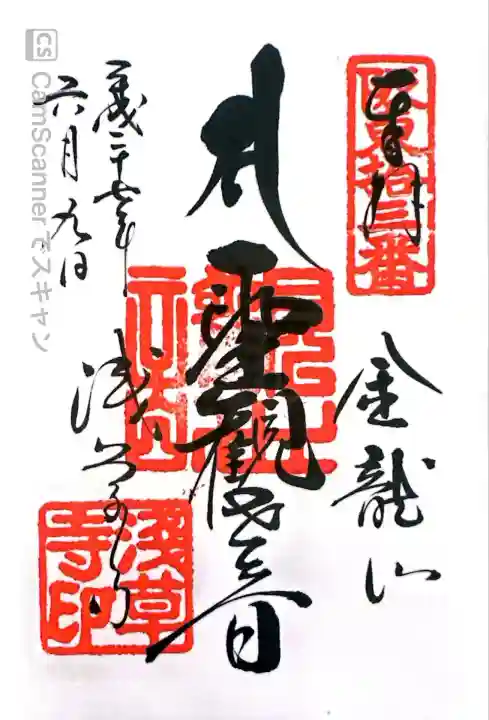 奉拝
坂東拾三番
金龍山
聖観世音
浅草寺
浅草寺印
六月九日
CS CamScannerでスキャン